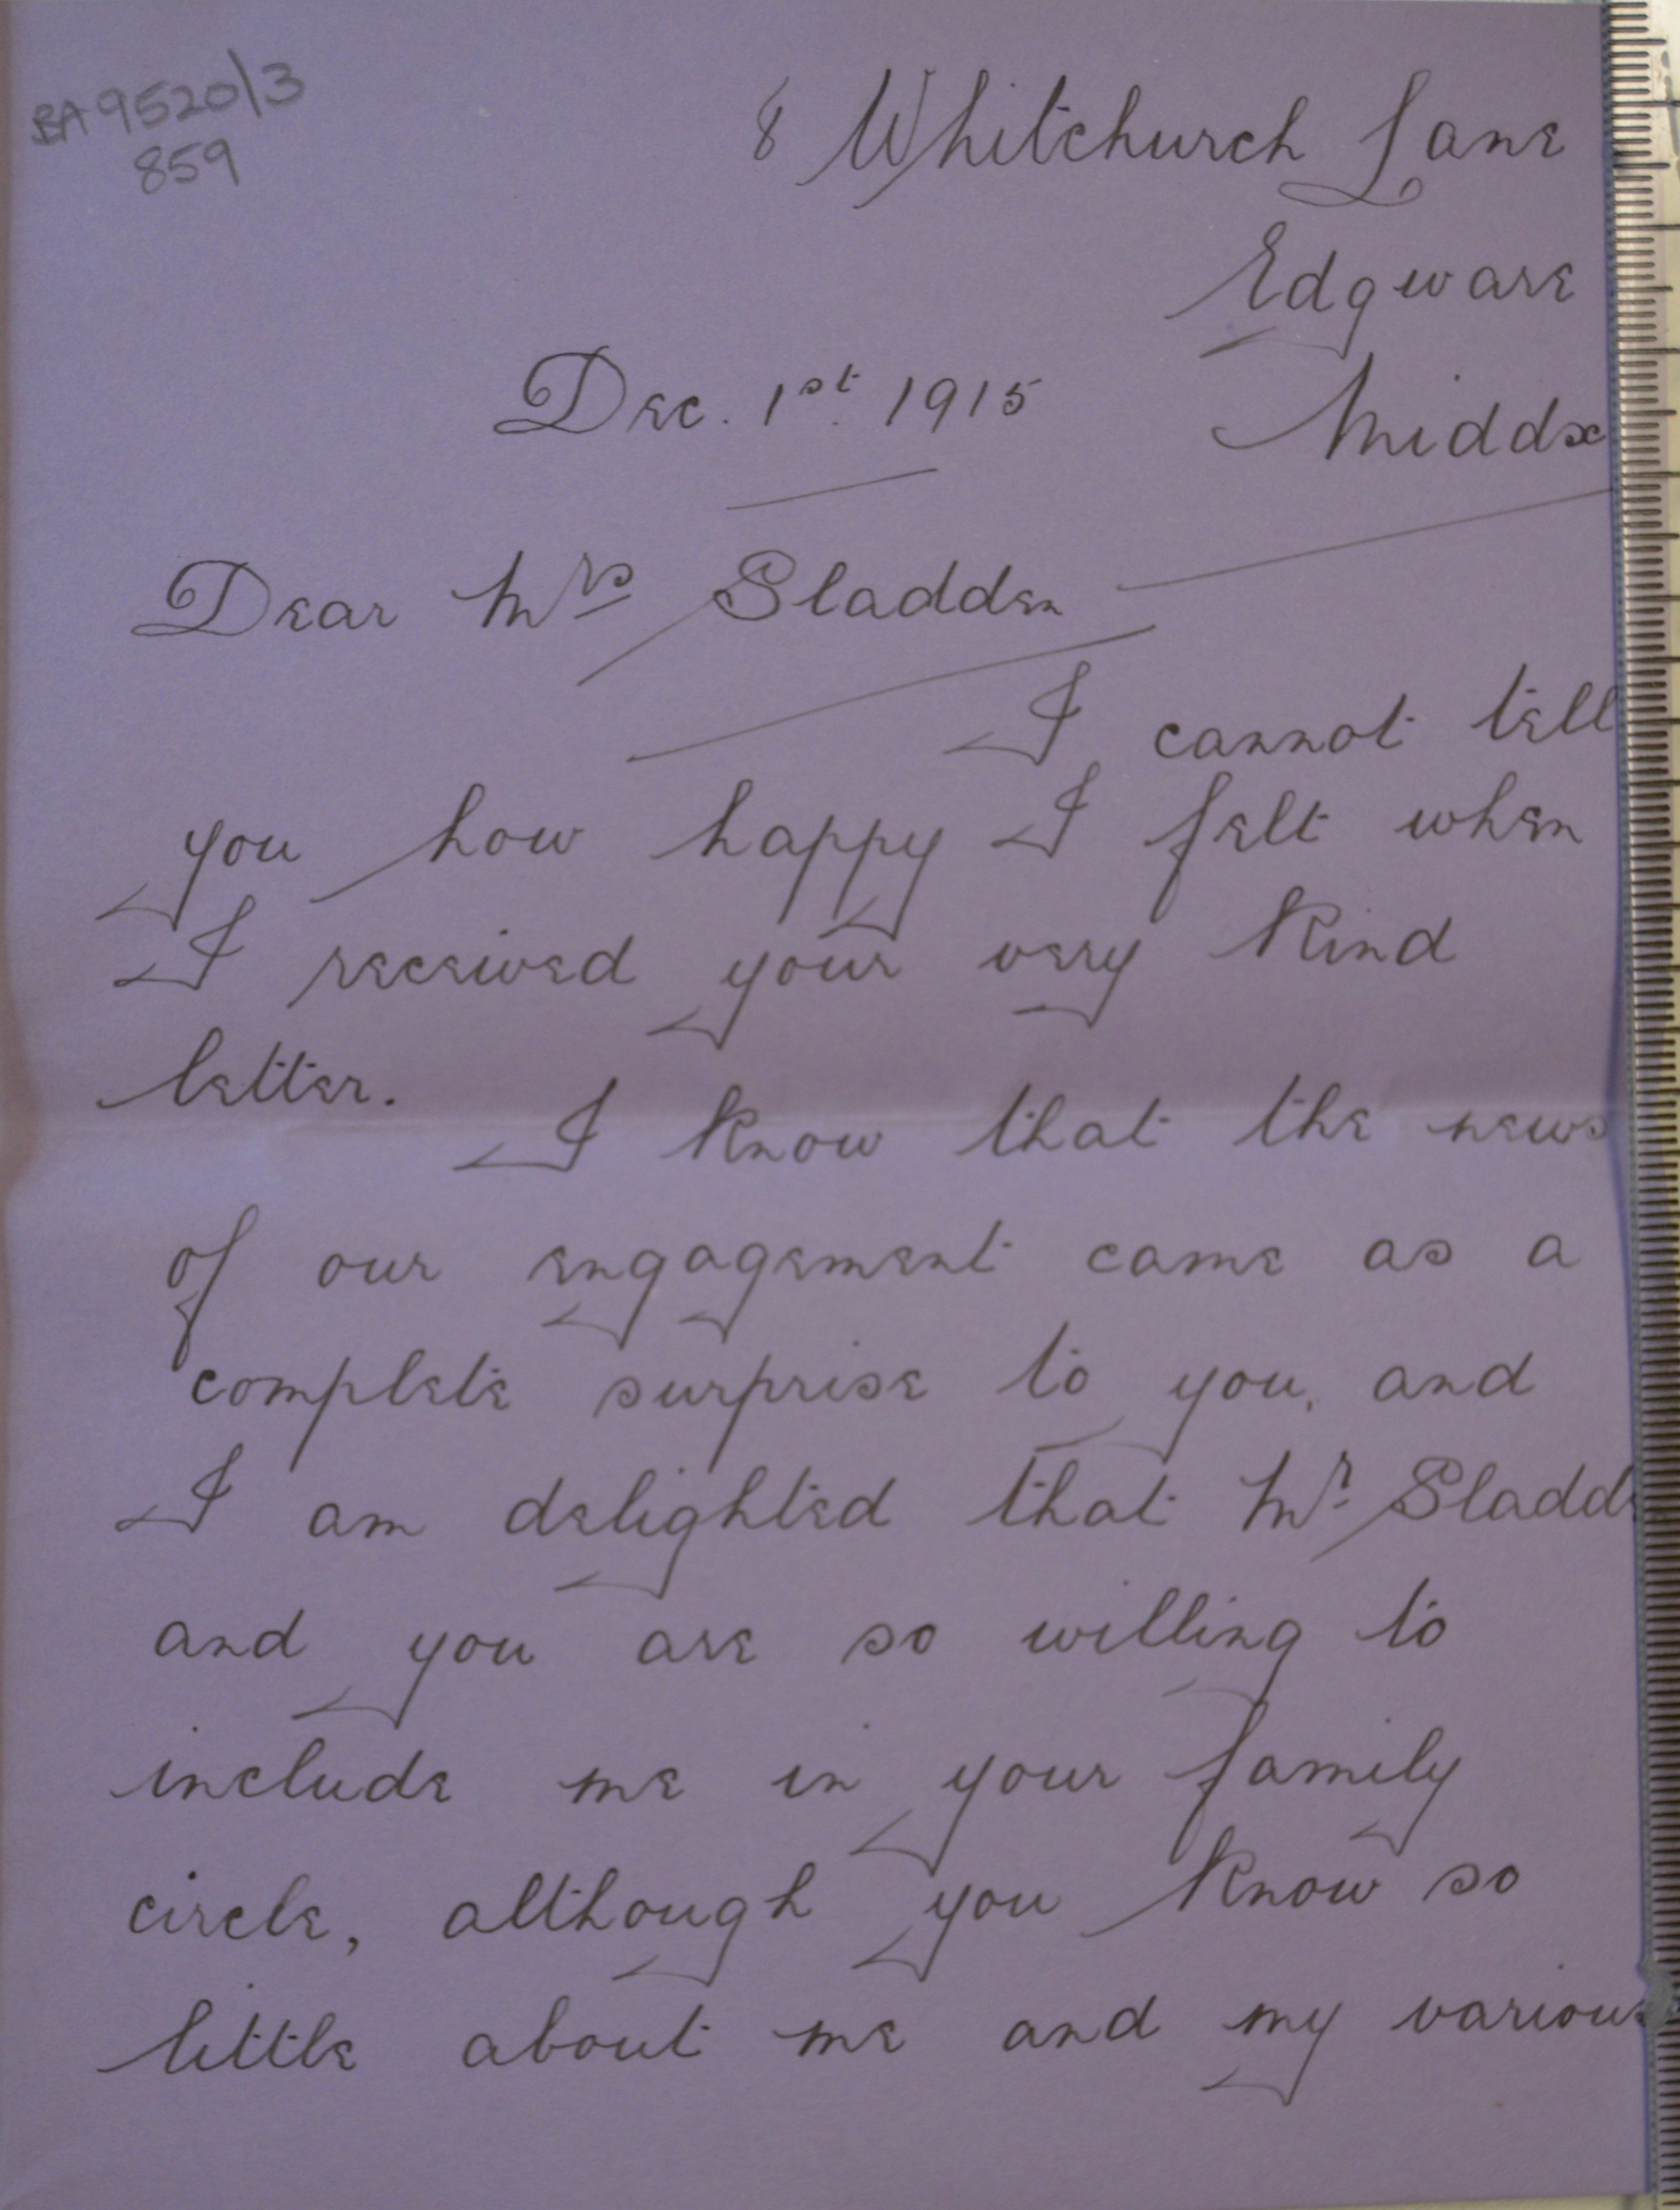 BA 9520/3
859
8 Whitchurch Lane
Edgware
Dec. 1st. 1915
Middx
Dear Mrs Sladden
I cannot tell
you how happy I felt when
I received your very kind
letter.
I know that the news
of our engagement came as a
complete surprise to you, and
I am delighted that Mr. Sladde
and you are so willing to
include me in your family
circle, although you know so
little about me and my various